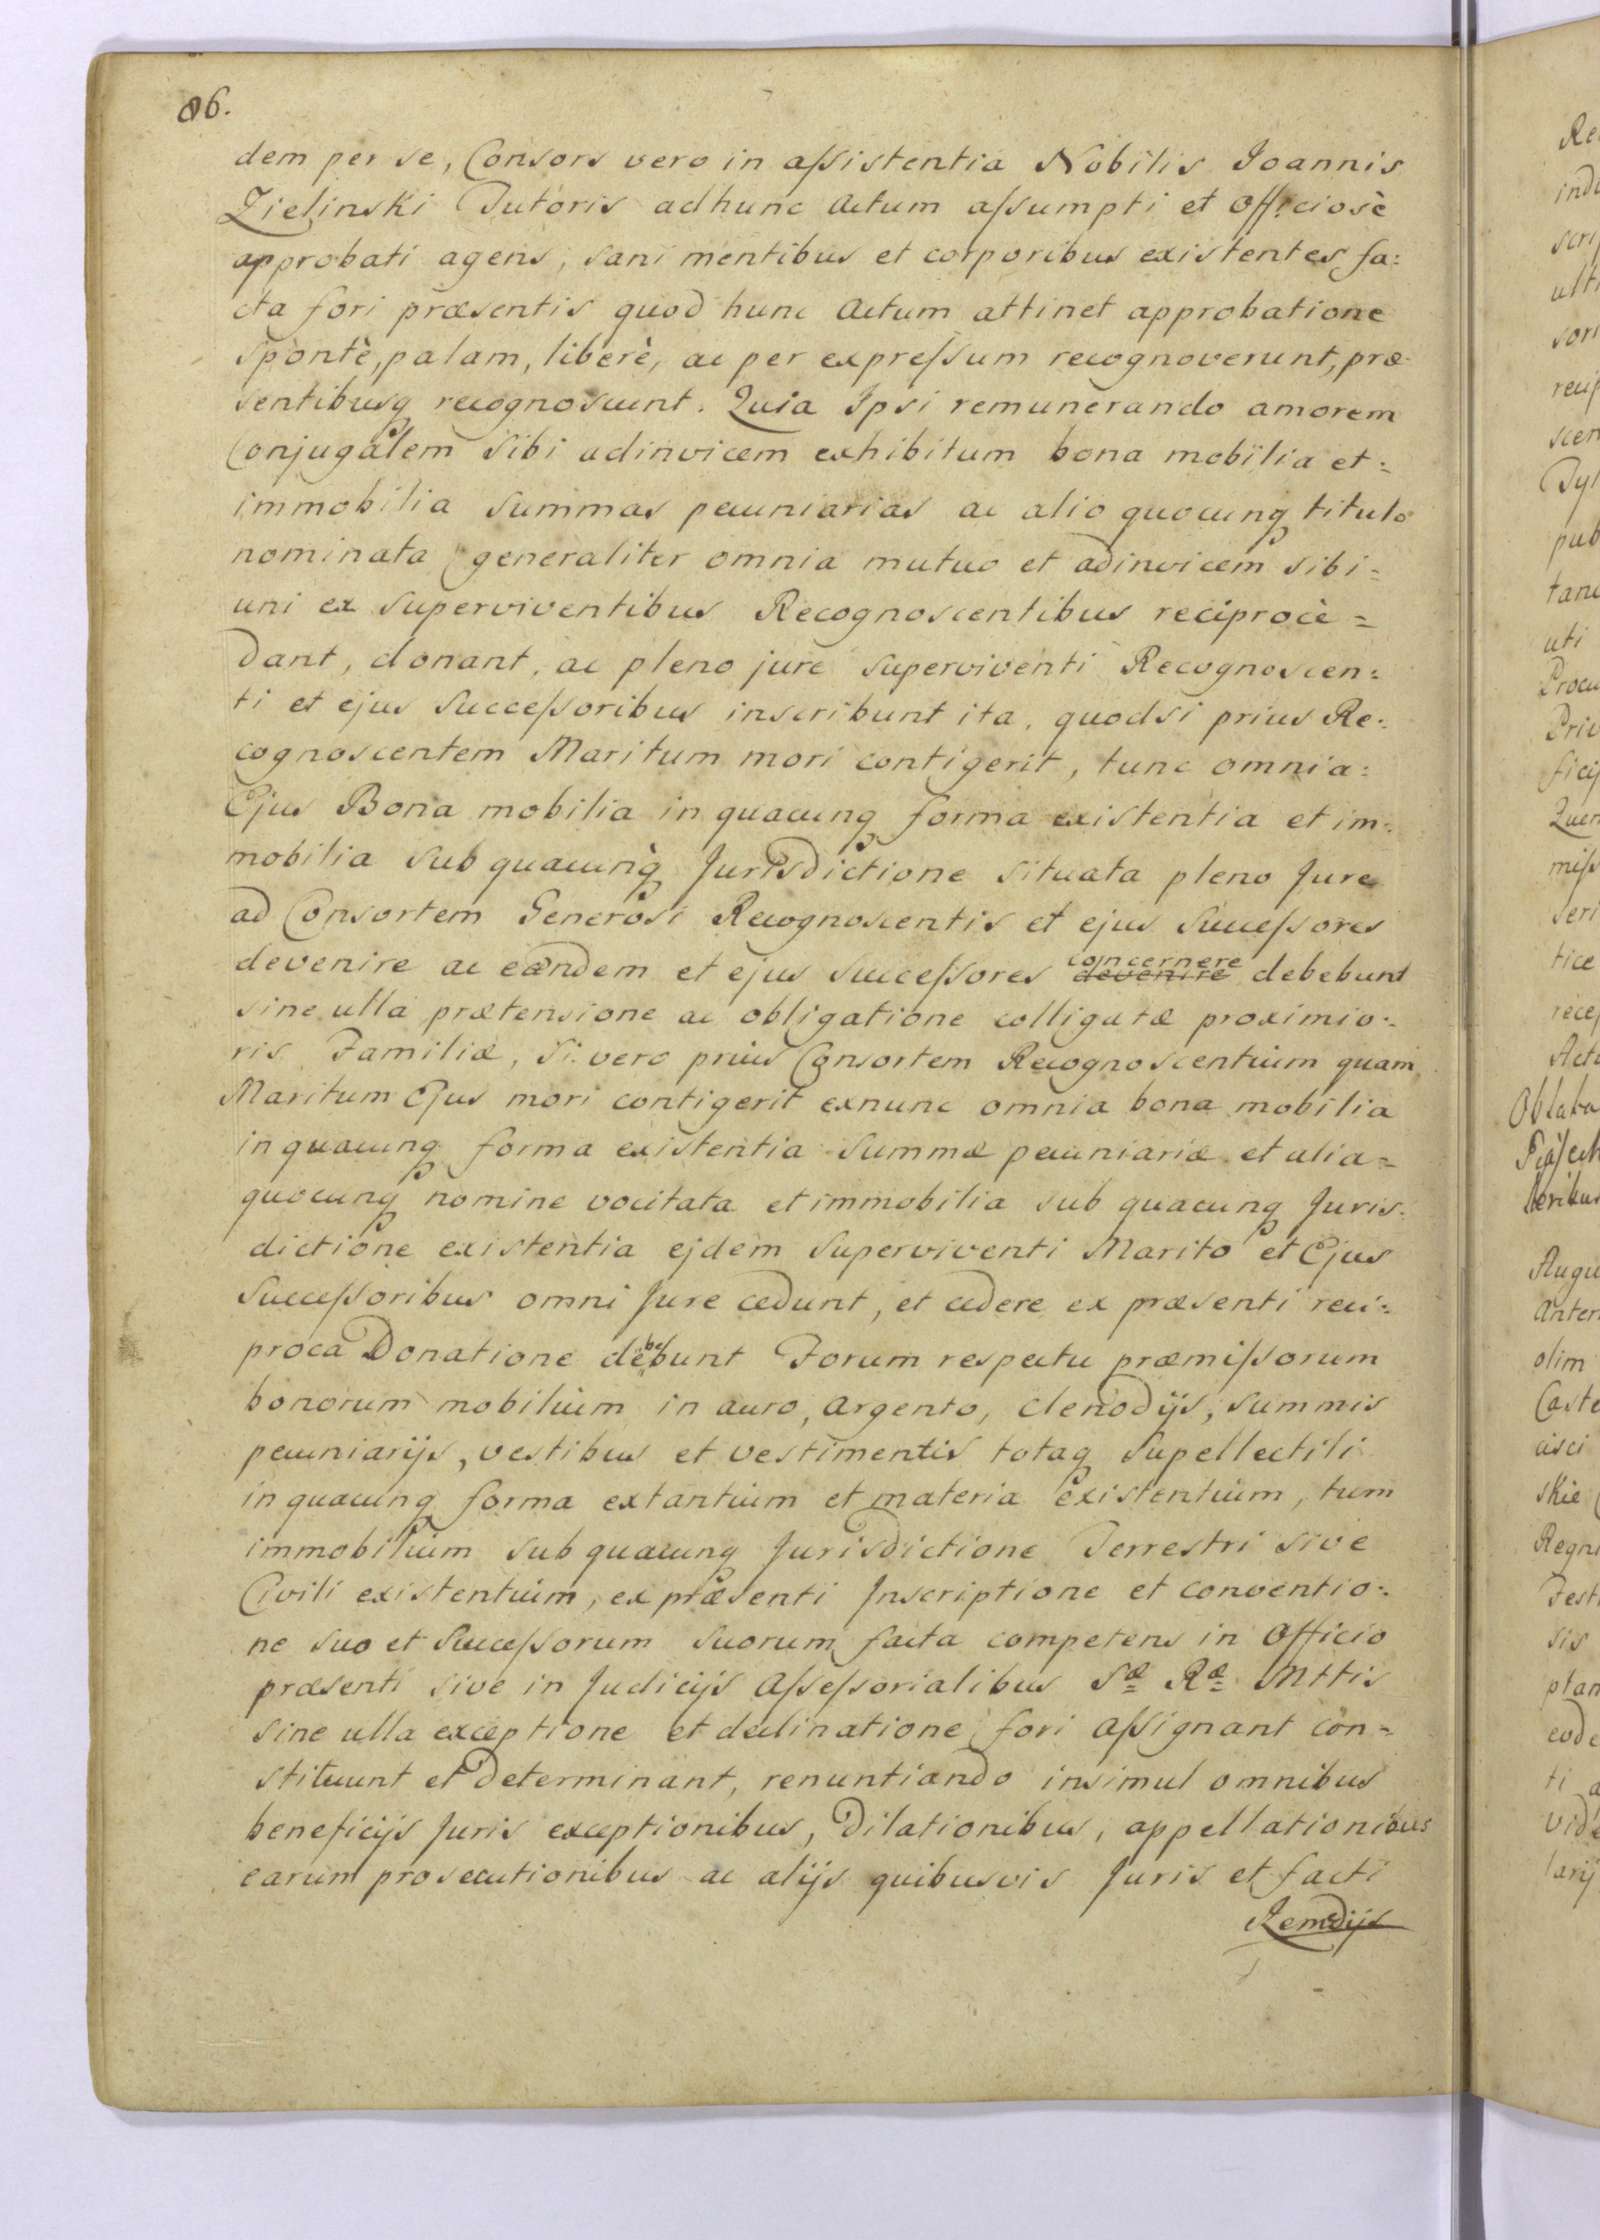 86.
dem per se, Consors vero in aſsistentia Nobilis Joannis
Zielinski Tutoris ad hunc Actum aſsumpti et Officiosè
approbati agens, sani mentibus et corporibus existentes fa=
cta fori præsentis quod hunc Actum attinet approbatione
Spontè, palam, liberè, ac per expreſsum recognoverunt, præ
sentibusq recognoscunt. Quia Ipsi remunerando amorem
Conjugalem Sibi adinvicem exhibitum bona mobilia et=
immobilia Summas pecuniarias ac alio quocunq titulo
nominata generaliter omnia mutuo et adinvicem sibi=
uni ex Superviventibus Recognoscentibus reciprocè=
dant, donant, ac pleno jure superviventi Recognoscen=
ti et ejus Succeſsoribus inscribunt ita, quodsi prius Re=
cognoscentem Maritum mori contigerit, tunc omnia=
Ejus Bona mobilia in quacunq forma existentia et im=
mobilia Sub quacunq Jurisdictione situata pleno Jure
ad Consortem Generosi Recognoscentis et ejus Succeſsores
devenire ac eændem et ejus Succeſsores devenire concernere debebunt
sine ulla prætensione ac obligatione colligatæ proximio=
ris Familiæ, Si vero prius Consortem Recognoscentium quam
Maritum Ejus mori contigerit exnunc omnia bona mobilia
in quacunq forma existentia Summæ pecuniariæ et alia=
quocunq nomine vocitata et immobilia sub quacunq Juris=
dictione existentia ejdem Superviventi Marito et Ejus
Succeſsoribus omni Jure cedunt, et cedere ex præsenti reci=
proca Donatione debebunt Forum respectu præmiſsorum
bonorum mobilium in auro, Argento, clenodijs, summis
pecuniarijs, vestibus et vestimentis totaq Supellectili
in quacunq forma extantium et materia existentium, tum
immobilium sub quacunq Jurisdictione Terrestri sive
Civili existentium, ex præsenti Inscriptione et conventio=
ne suo et Succeſsorum suorum facta competens in Officio
præsenti sive in Judicijs Aſseſsorialibus Sæ Ræ Mttis
sine ulla exceptione et declinatione fori Aſsignant con=
stituunt et Determinant, renuntiando insimul omnibus
beneficijs Juris exceptionibus, Dilationibus, appellationibus
earum prosecutionibus ac alijs quibusvis Juris et facti
Remedijs
Re
indu
scrip
ulti
sori
recip
scen
Tyt
pub
tanc
uti
Procu
Priv
ficij
Quem
miſs
seri
tice
recep
Actu
Oblata
Augu
Anter
olim
Caste
cisci
skie
Regni
Festi
sis
plan
eode
ti a
vide
larij